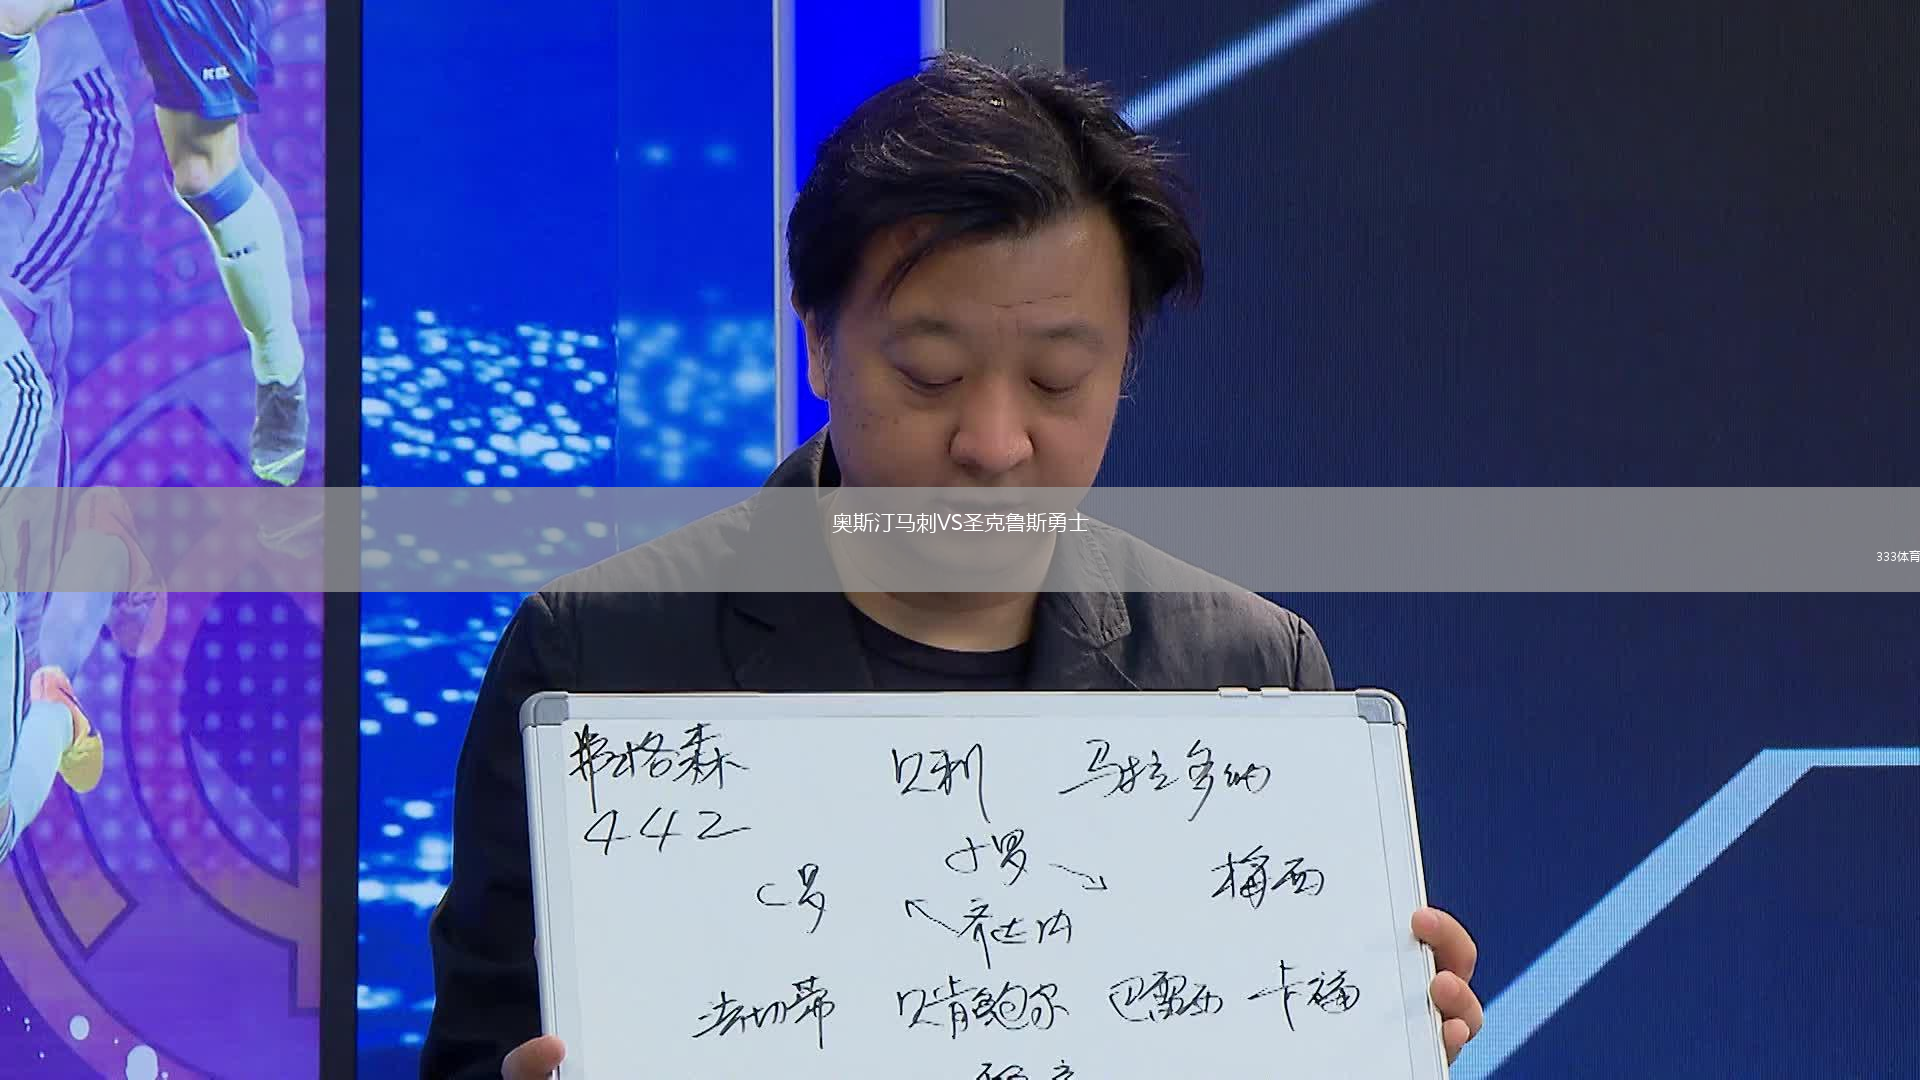 奥斯汀马刺VS圣克鲁斯勇士
333体育
弗格森 贝利 马拉多纳
442
大罗
C罗 梅西
齐达内
法切蒂 贝肯鲍尔 巴雷西 卡福